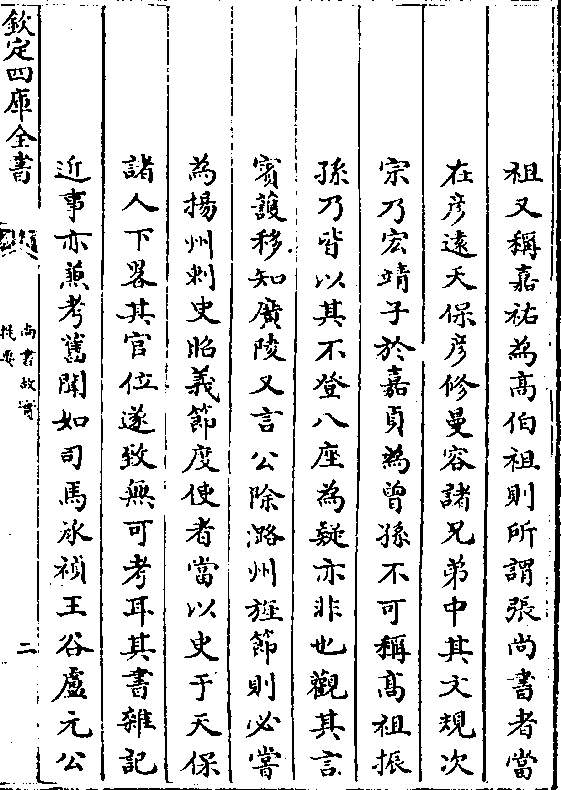 祖又稱嘉祐為髙伯祖則所謂張尚書者當
在彦遠天保彦修曼容諸兄弟中其文規次
宗乃宏靖子於嘉貞為曾孫不可稱髙祖振
孫乃皆以其不登八座為疑亦非也觀其言
賓護移知廣陵又言公除潞州旌節則必嘗
為揚州刺史昭義節度使者當以史于天保
諸人下畧其官位遂致無可考耳其書雜記
近事亦兼考舊聞如司馬承禎王谷盧元公
欽定四庫全書
尚書故實
提要
二